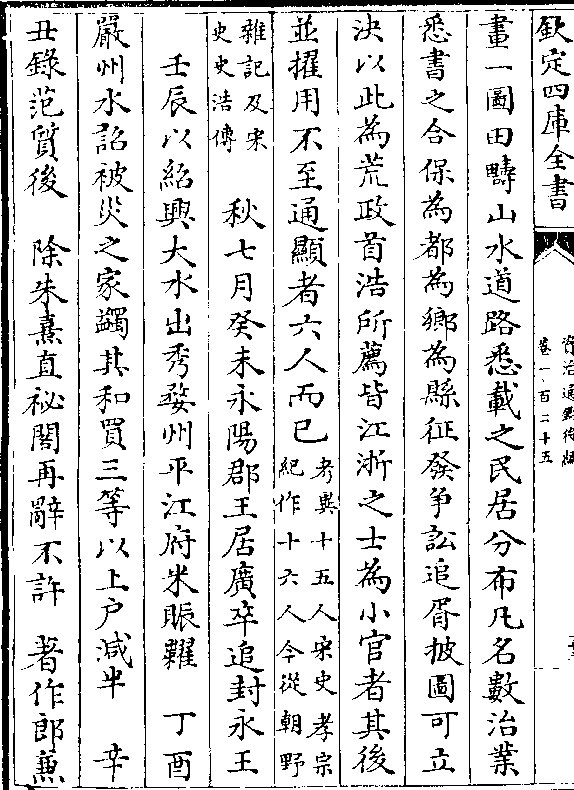 欽定四庫全書
資治通鑑後編
卷一百二十五
畫一圖田疇山水道路悉載之民居分布凡名數治業
悉書之合保為都為鄉為縣征發爭訟追胥披圖可立
決以此為荒政首浩所薦皆江浙之士為小官者其後
並擢用不至通顯者六人而已
考異十五人宋史孝宗
紀作十六人今從朝野
雜記及宋
史史浩傳
秋七月癸未永陽郡王居廣卒追封永王
壬辰以紹興大水出秀婺州平江府米賑糶 丁酉
嚴州水詔被災之家蠲其和買三等以上戶減半 辛
丑錄范質後 除朱熹直祕閣再辭不許 著作郎兼